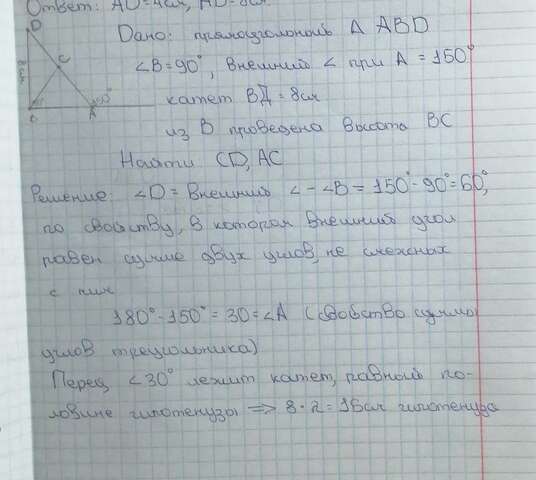 Ответ: AD=4см, AD=8см
D
Дано: прямоугольный Δ ABD
C
∠B=90°, внешний ∠ при A=150°
8см
150°
катет ВД=8см
B
A
из B проведена высота BC
Найти CD, AC
Решение: ∠D = внешний ∠-∠B=150°-90°=60°,
по свойству, в котором внешний угол
равен сумме двух углов, не смежных
с ним
180°-150°=30=∠A (свойство суммы
углов треугольника)
Перед ∠30° лежит катет, равный по-
ловине гипотенузы => 8·2=16см гипотенуза